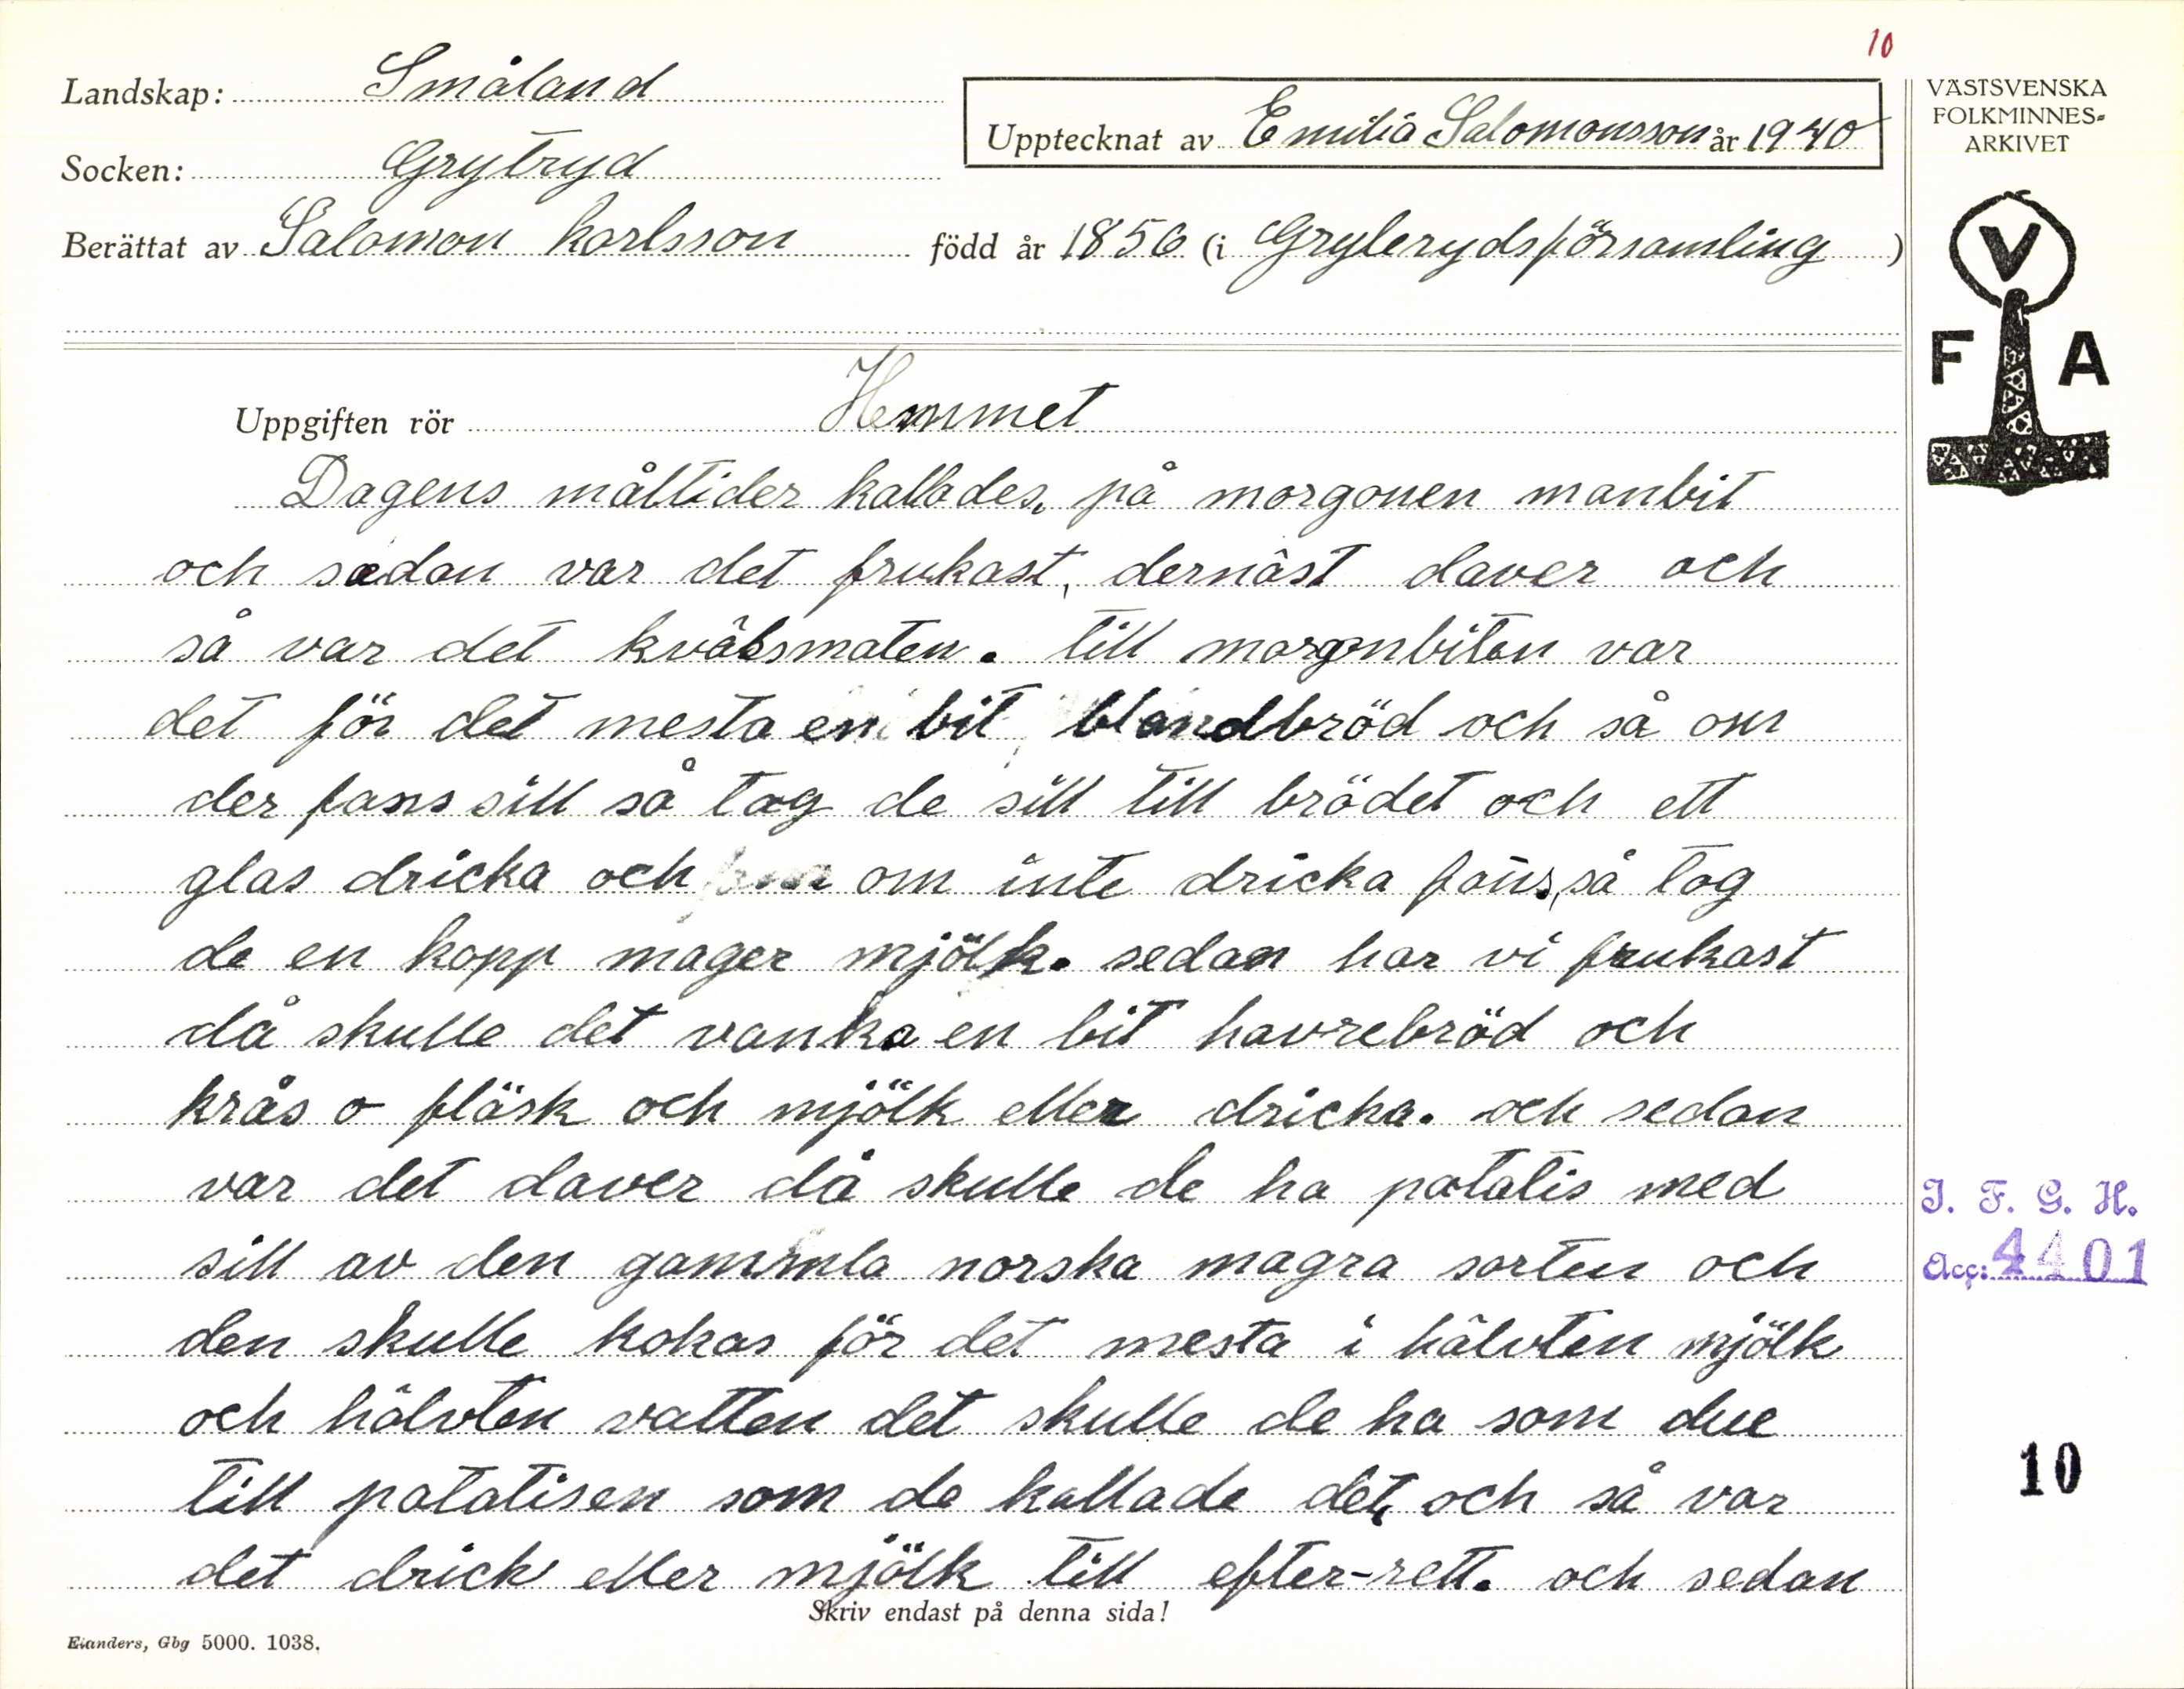 10
Landskap: Småland
Upptecknat av Emilia Salomonsson år 1940
Socken: Grytryd
Berättat av Salomon Karlsson född år 1856 (i Gryterydsförsamling)
VÄSTSVENSKA
FOLKMINNES-
ARKIVET
V
F A
Uppgiften rör Hemmet
Dagens måltider kallades, på morgonen manbit
och sedan var det frukast, dernäst daver och
så var det kvälsmaten. till morgonbiten var
det för det mesta en bit blandbröd och så om
der fans sill så tog de sill till brödet och ett
glas dricka och om inte dricka fans, så tog
de en kopp mager mjölk. sedan har vi frukast
då skulle det vanka en bit havrebröd och
krås o fläsk och mjölk eller dricka. och sedan
var det daver då skulle de ha patatis med
sill av den gammla norska magra sorten och
den skulle kokas för det mesta i hälvten mjölk
och hälvten vatten det skulle de ha som
till patatisen som de kallade det, och så var
det drick eller mjölk till efter-rett. och sedan
I. F. G. H.
Acc: 4401
10
Skriv endast på denna sida!
Elanders, Gbg 5000. 1038.